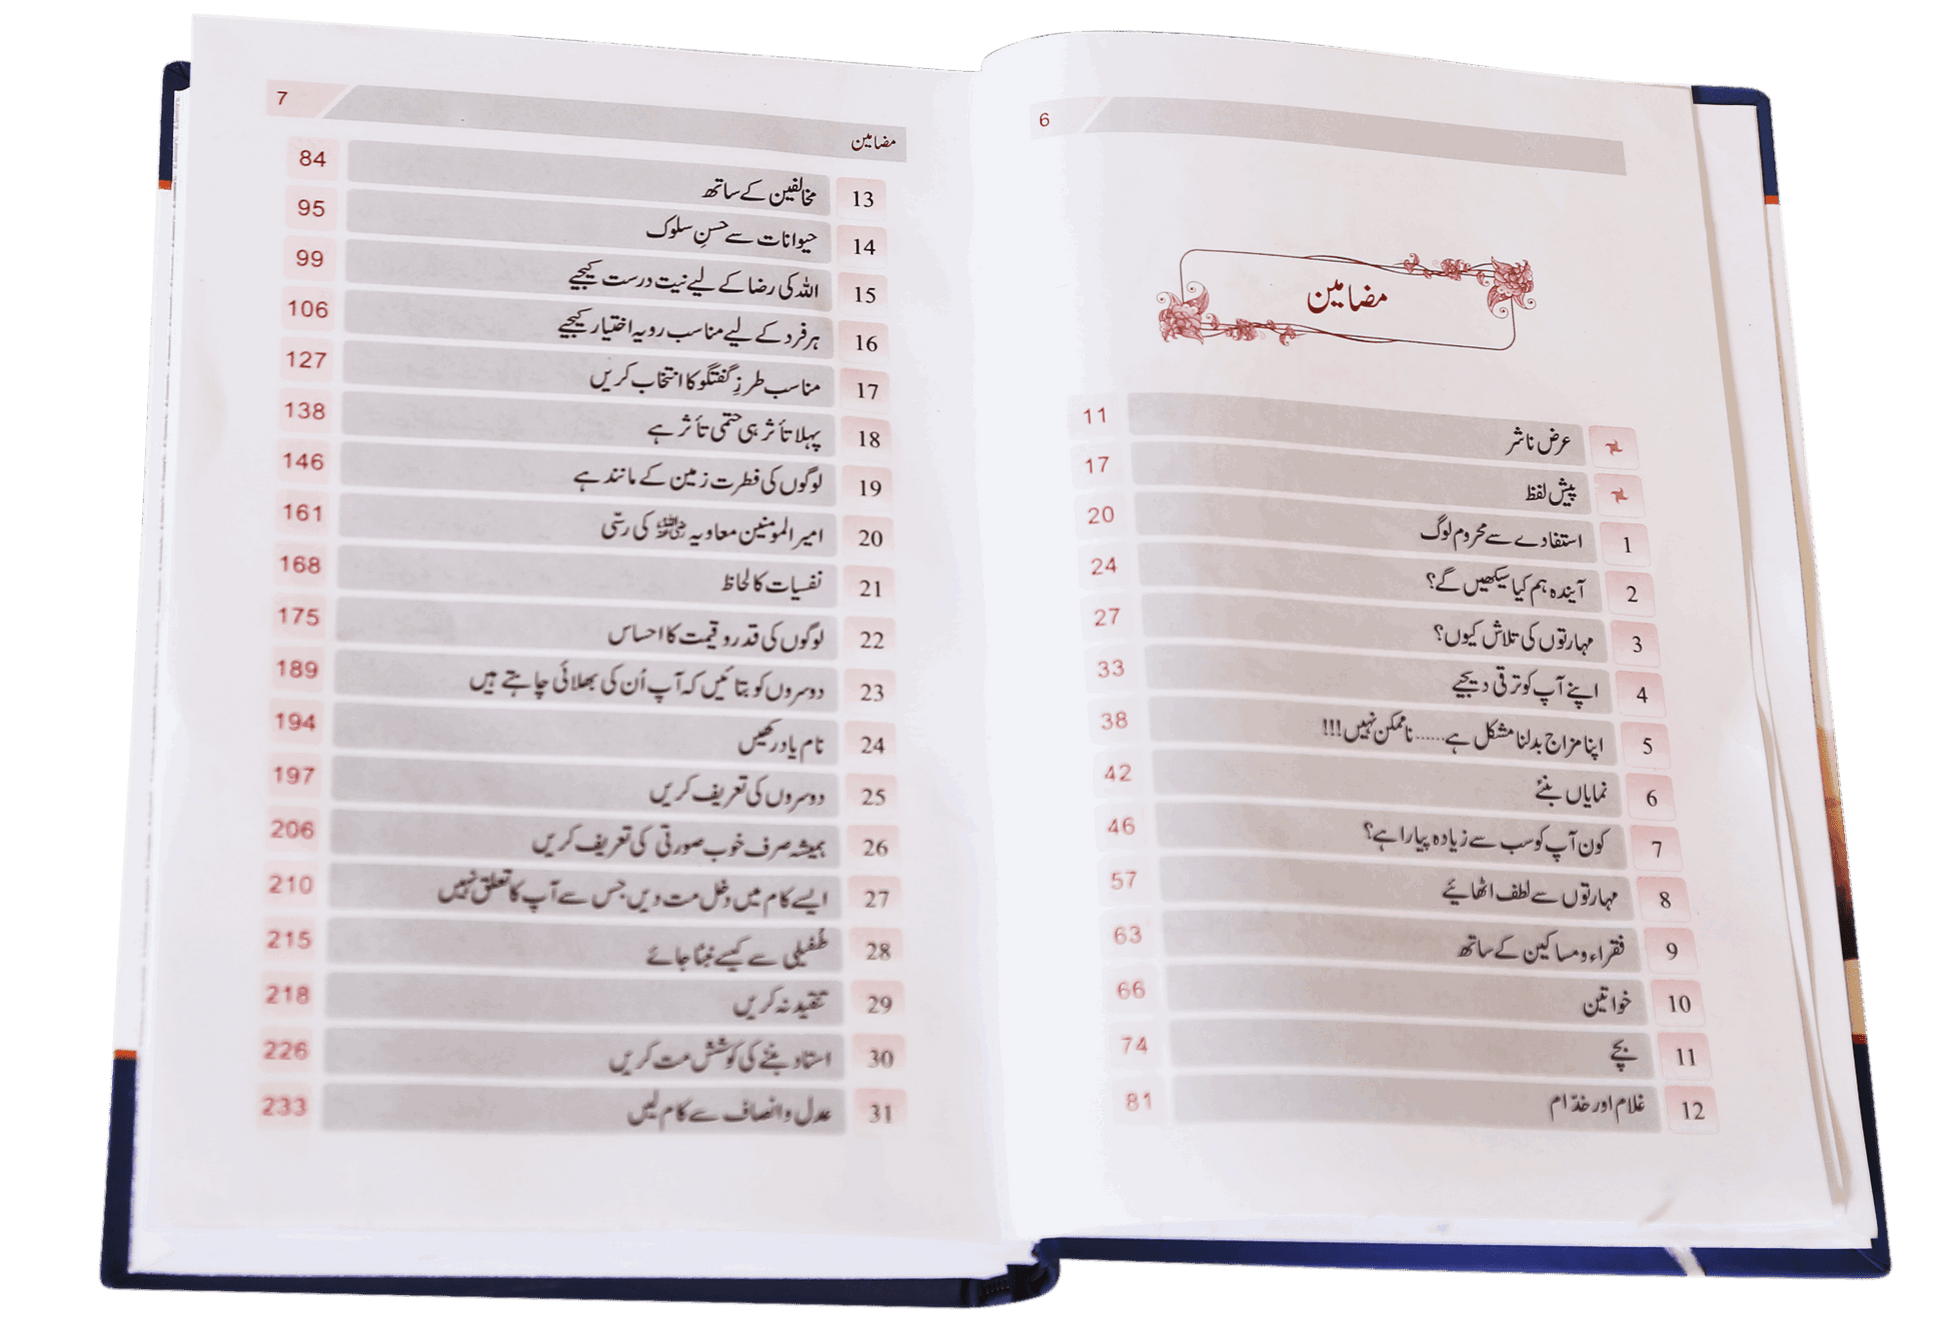 6
مضامین
عرض ناشر 11
پیش لفظ 17
1 استفادے سے محروم لوگ 20
2 آیندہ ہم کیا سیکھیں گے؟ 24
3 مہارتوں کی تلاش کیوں؟ 27
4 اپنے آپ کو ترقی دیجیے 33
5 اپنا مزاج بدلنا مشکل ہے...... ناممکن نہیں!!! 38
6 نمایاں بنئے 42
7 کون آپ کو سب سے زیادہ پیارا ہے؟ 46
8 مہارتوں سے لطف اٹھائیے 57
9 فقراء و مساکین کے ساتھ 63
10 خواتین 66
11 بچے 74
12 غلام اور خدّام 81
7
مضامین
13 مخالفین کے ساتھ 84
14 حیوانات سے حسنِ سلوک 95
15 اللہ کی رضا کے لیے نیت درست کیجیے 99
16 ہر فرد کے لیے مناسب رویہ اختیار کیجیے 106
17 مناسب طرزِ گفتگو کا انتخاب کریں 127
18 پہلا تأثر ہی حتمی تأثر ہے 138
19 لوگوں کی فطرت زمین کے مانند ہے 146
20 امیر المومنین معاویہ رضی اللہ عنہ کی رسّی 161
21 نفسیات کا لحاظ 168
22 لوگوں کی قدر و قیمت کا احساس 175
23 دوسروں کو بتائیں کہ آپ اُن کی بھلائی چاہتے ہیں 189
24 نام یاد رکھیں 194
25 دوسروں کی تعریف کریں 197
26 ہمیشہ صرف خوب صورتی کی تعریف کریں 206
27 ایسے کام میں دخل مت دیں جس سے آپ کا تعلق نہیں 210
28 طُفیلی سے کیسے نبٹا جائے 215
29 تنقید نہ کریں 218
30 استاد بننے کی کوشش مت کریں 226
31 عدل و انصاف سے کام لیں 233